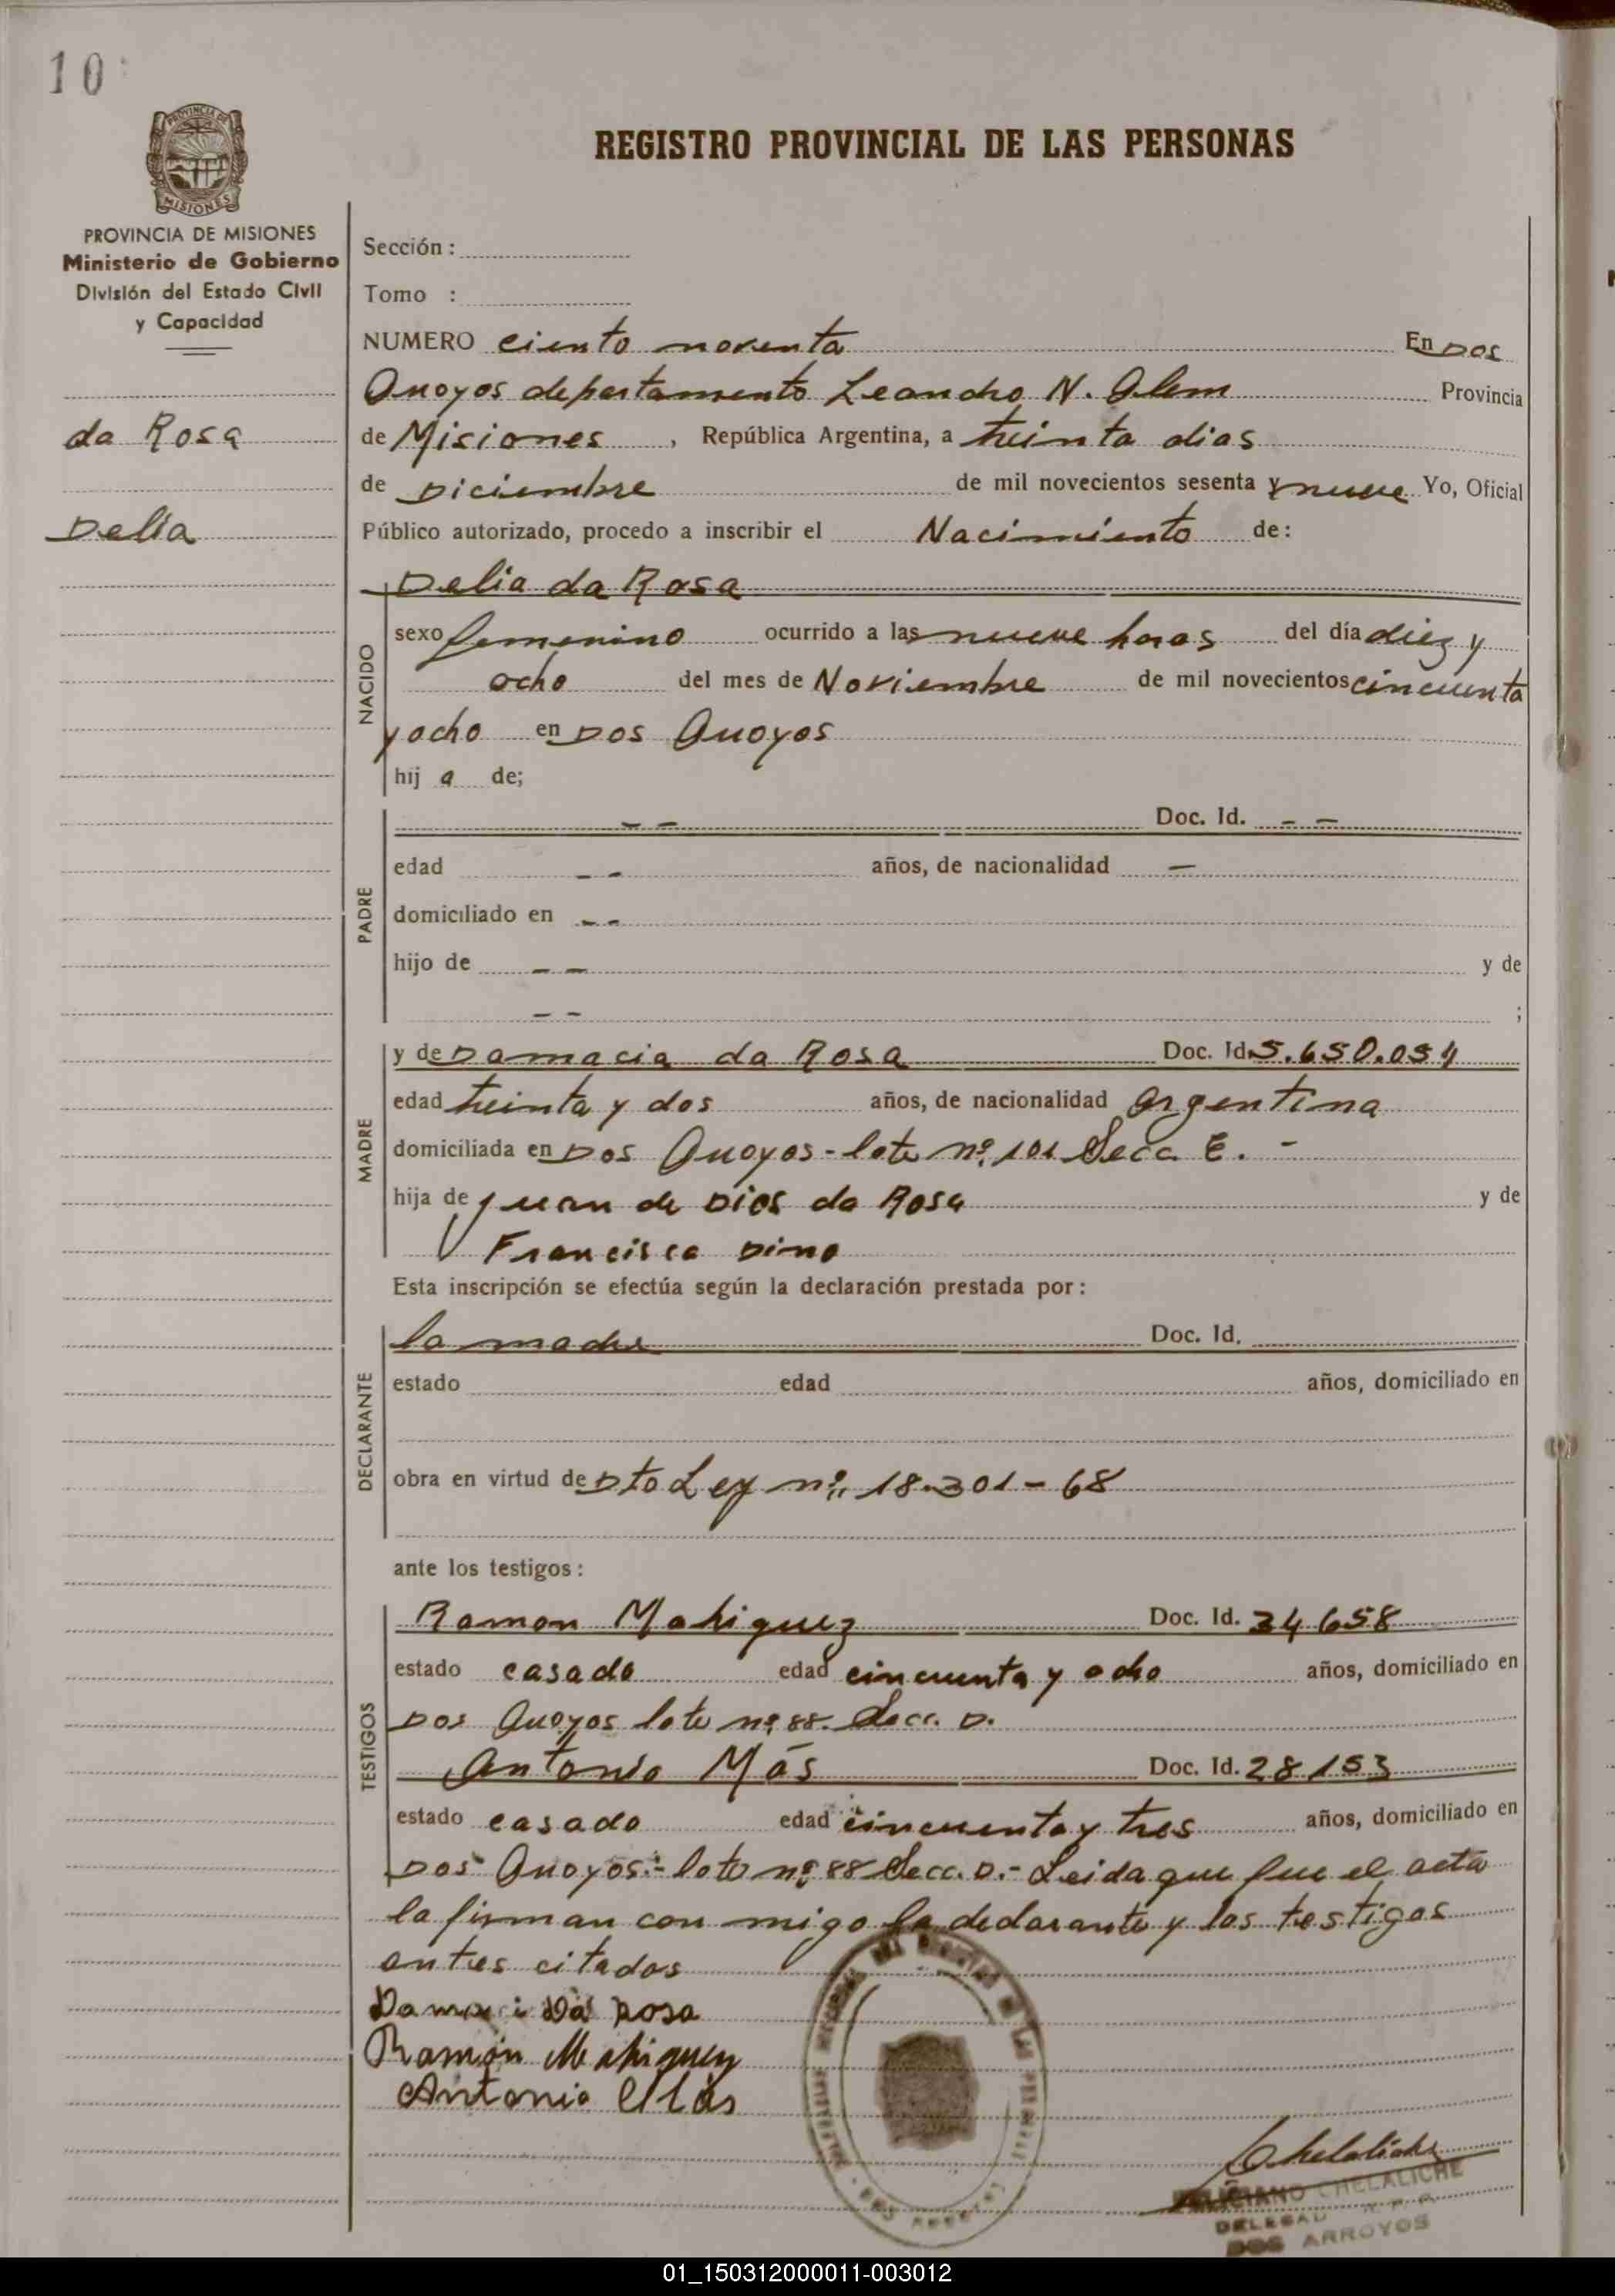 10
PROVINCIA DE MISIONES
REGISTRO PROVINCIAL DE LAS PERSONAS
PROVINCIA DE MISIONES
Ministerio de Gobierno
División del Estado Civil
y Capacidad
da Rosa
Delia
Sección :
Tomo :
NUMERO ciento noventa En Dos
Arroyos departamento Leandro N. Alem Provincia
de Misiones , República Argentina, a treinta dias
de Diciembre de mil novecientos sesenta y nueve Yo, Oficial
Público autorizado, procedo a inscribir el Nacimiento de:
Delia da Rosa
NACIDO
sexo femenino ocurrido a las nueve horas del día diez y
ocho del mes de Noviembre de mil novecientos cincuenta
y ocho en Dos Arroyos
hij a de;
PADRE
-- Doc. Id. --
edad -- años, de nacionalidad -
domiciliado en --
hijo de -- y de
-- ;
MADRE
y de Damacia da Rosa Doc. Id. 5.650.054
edad treinta y dos años, de nacionalidad argentina
domiciliada en Dos Arroyos - lote nº 101 Secc E. -
hija de Juan de Dios da Rosa y de
Francisca
Esta inscripción se efectúa según la declaración prestada por :
DECLARANTE
la madre Doc. Id.
estado edad años, domiciliado en
obra en virtud de Dto Ley nº 18.301-68
ante los testigos :
TESTIGOS
Ramon Mahiguez Doc. Id. 34.658
estado casado edad cincuenta y ocho años, domiciliado en
Dos Arroyos lote nº 88. Secc. D.
Antonio Más Doc. Id. 28.153
estado casado edad cincuenta y tres años, domiciliado en
Dos Arroyos.- lote nº 88 Secc. D.- Leida que fue el acta
la firman con migo la declarante y los testigos
antes citados
Da Rosa
Ramón Mahiguez
Antonio Más
Chelaliche
FELICIANO CHELALICHE
DOS ARROYOS
01_150312000011-003012